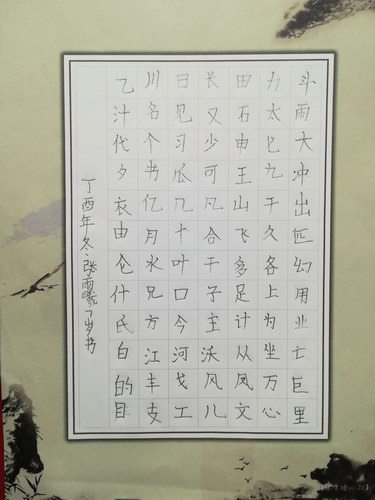 斗雨大冲出匹幻用业亡巨里
力太匕九千久各上为坐万心
田石申王山飞多足计从凤文
长又少可凡合干子主沃风儿
日见习瓜几十叶口今河戈工
川名个书亿月水兄方江丰支
乙汁代夕衣由仑什氏白的目
丁酉年冬·张雨曦7岁书